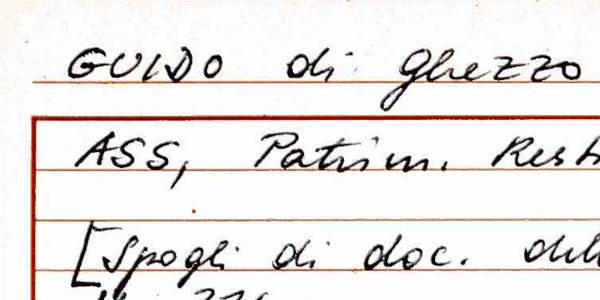 GUIDO di Ghezzo
ASS, Patrim. Rest
[Spogli di doc. dell